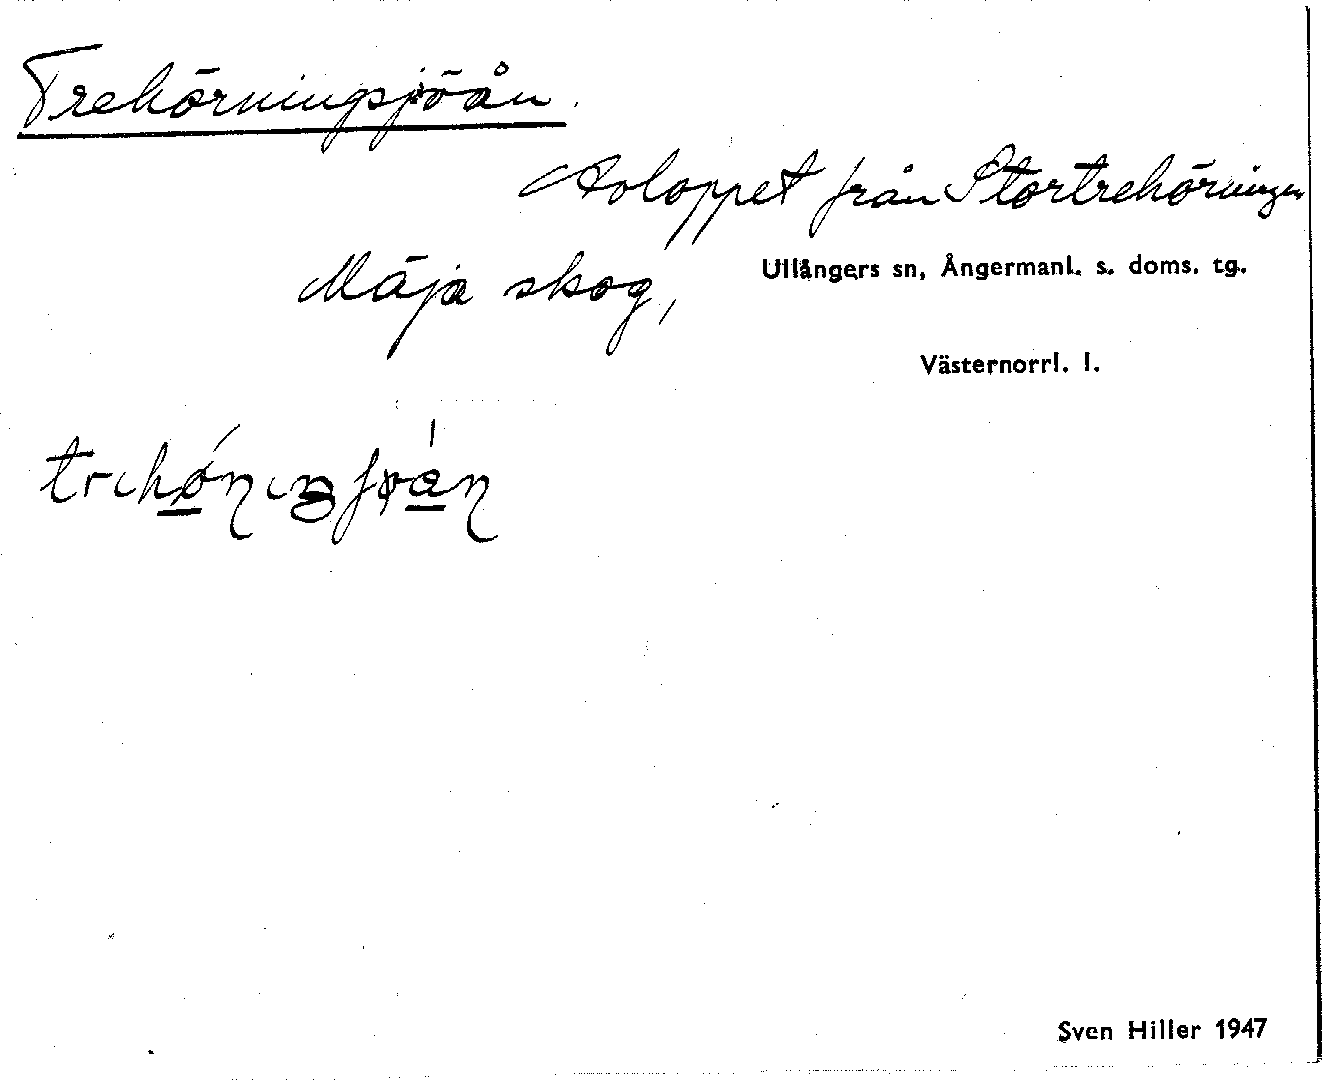 Trehörningsjöån.
Avloppet från Stortrehörningen
Mäja skog,
Ullångers sn, Ångermanl. s. doms. tg.
Västernorrl. l.
Sven Hiller 1947